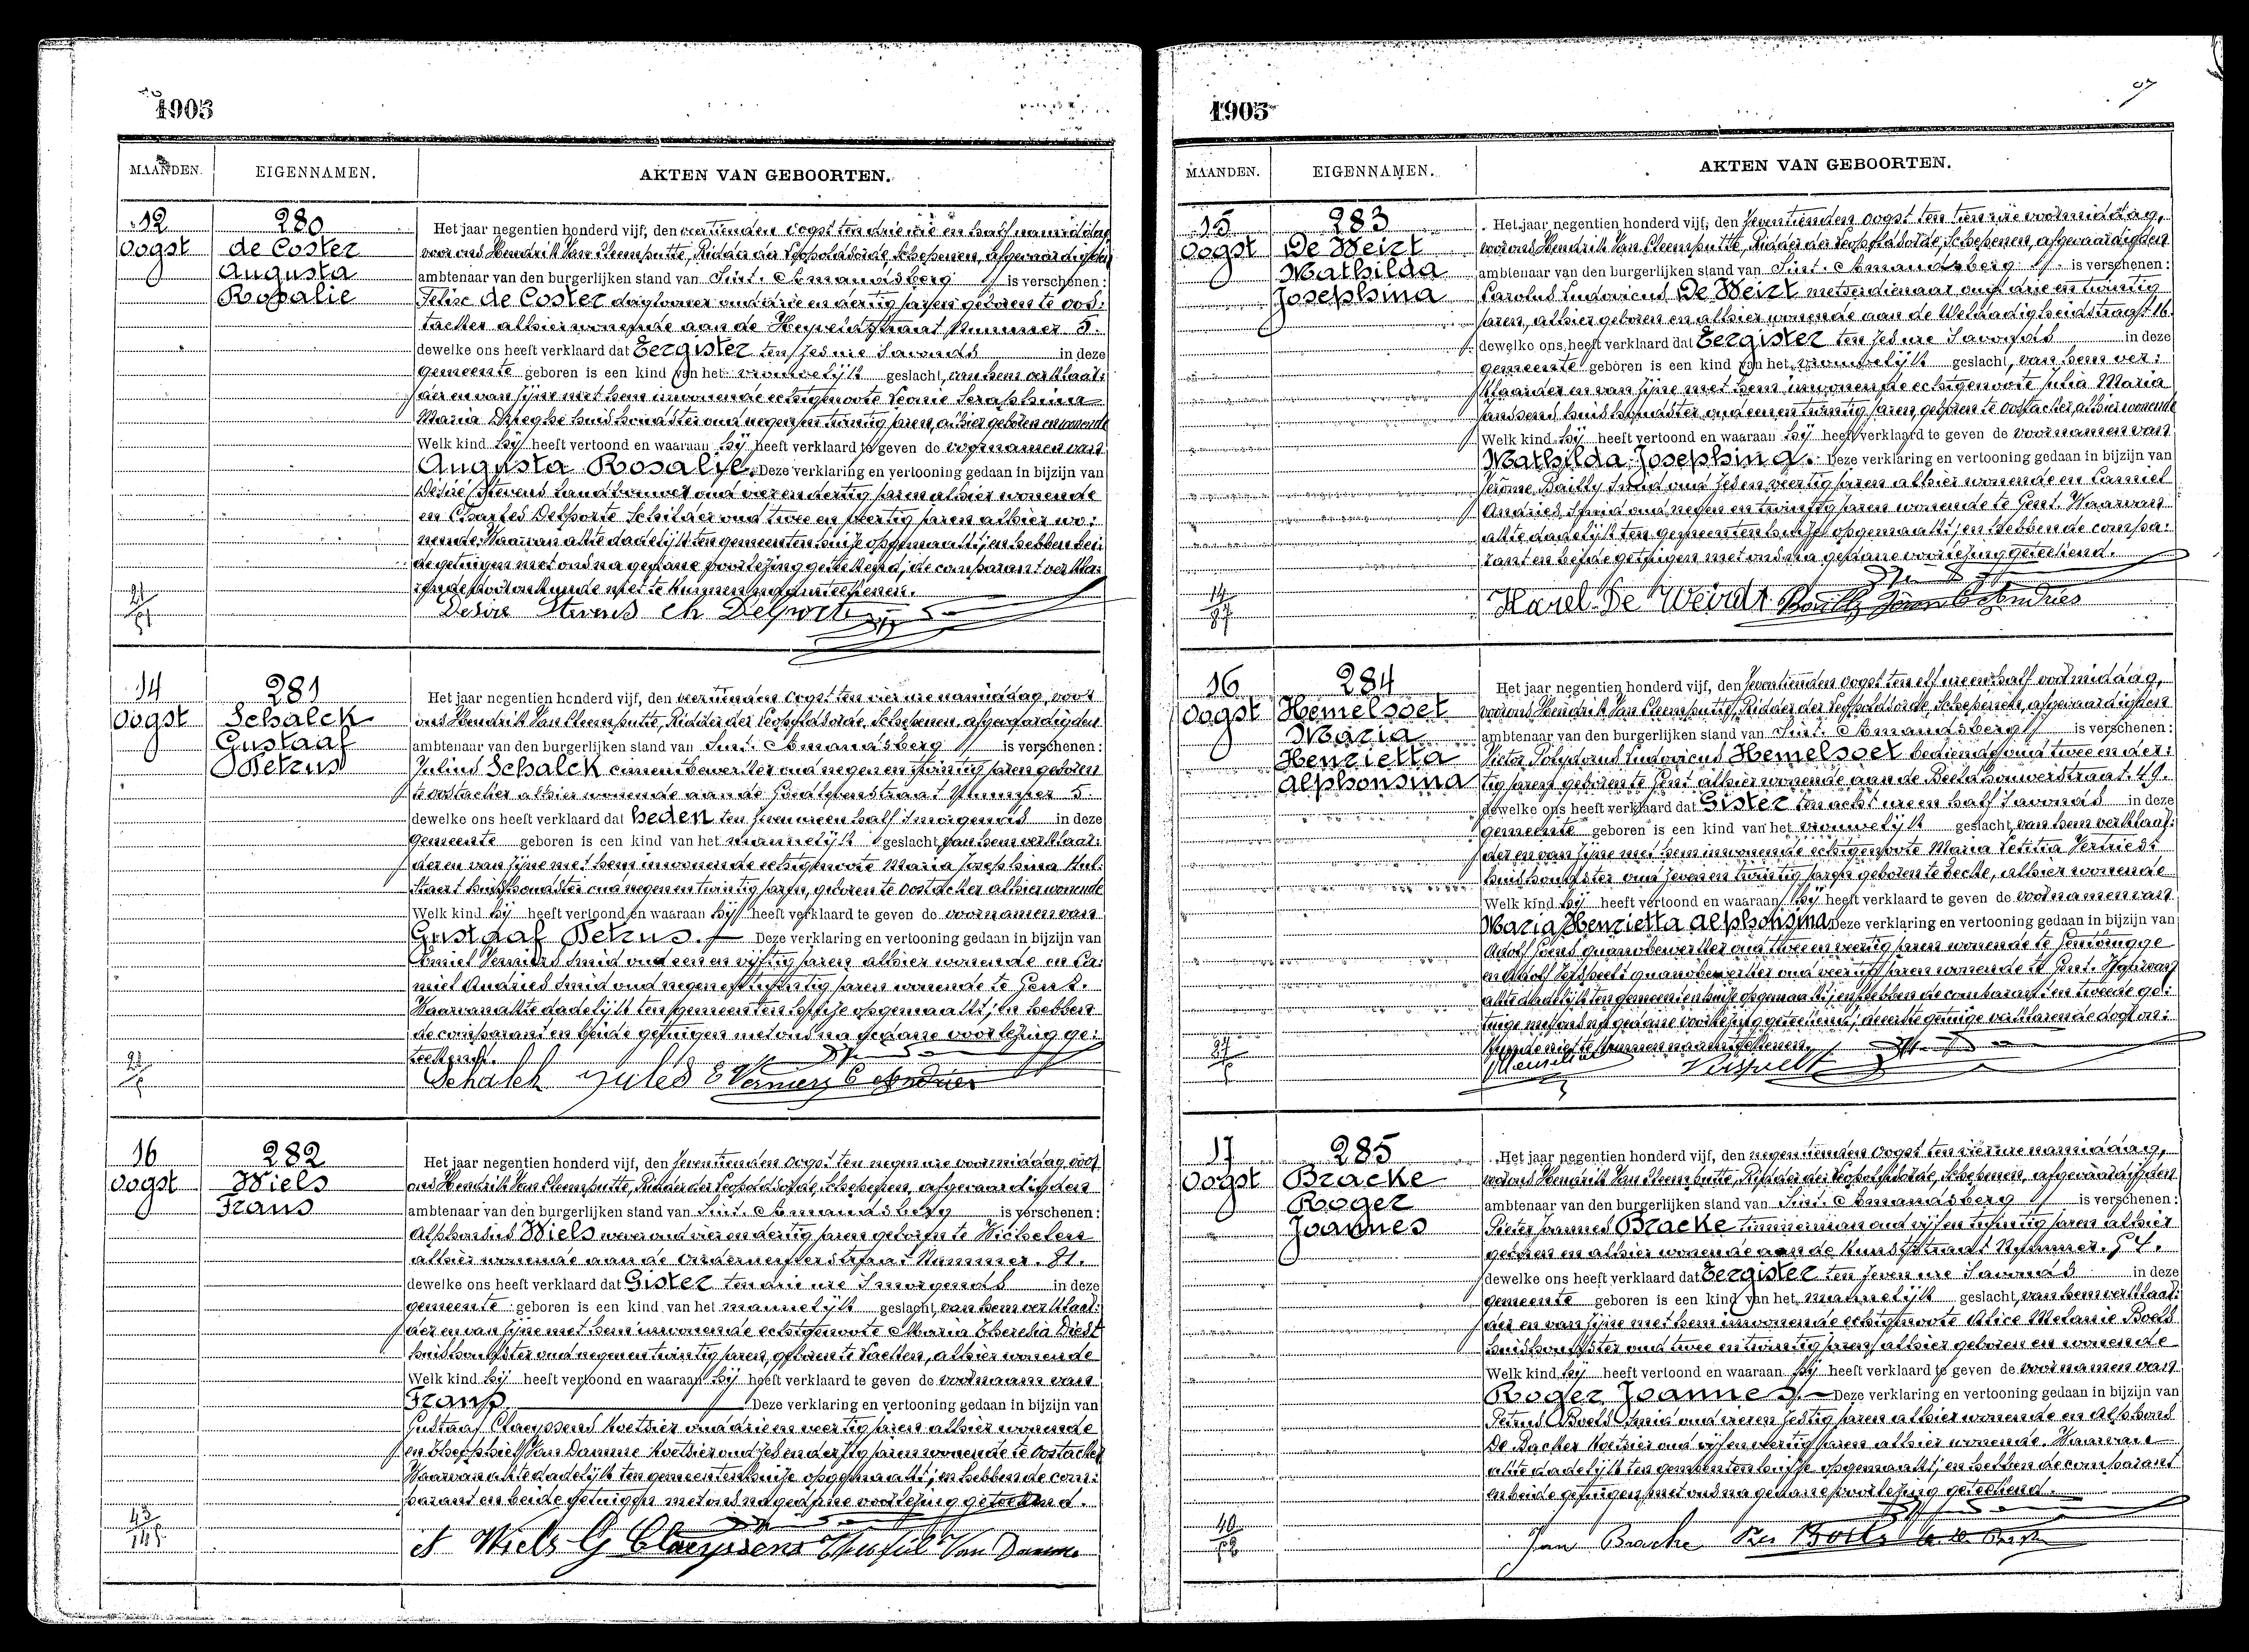 1905
MAANDEN.
EIGENNAMEN.
AKTEN VAN GEBOORTEN.
12
Oogst
280
de Coster
Augusta
Rosalie
Het jaar negentien honderd vijf, den veertienden oogst ten drie ure en half namiddag
voor ons Hendrik Van Cleemputte, Ridder der Leopoldsorde, Schepenen, afgevaardigden
ambtenaar van den burgerlijken stand van Sint. Amandsberg is verschenen:
Felix de Coster daglooner oud drie en dertig jaren geboren te Oos:
tacker alhier wonende aan de Heiveldstraat Nummer 5.
dewelke ons heeft verklaard dat Eergister ten zes ure s'avonds in deze
gemeente geboren is een kind van het vrouwelijk geslacht, van hem verklaar:
der en van zijne met hem inwonende echtgenoote Leonie Seraphina
Maria huishoudster oud negen en twintig jaren, alhier geboren en wonende
Welk kind hij heeft vertoond en waaraan hij heeft verklaard te geven de voornamen van
Augusta Rosalie. Deze verklaring en vertooning gedaan in bijzijn van
Desiré Stevens landbouwer oud vier en dertig jaren alhier wonende
en Charles Delporte Schilder oud twee en veertig jaren alhier wo:
nende. Waarvan akte dadelijk ten gemeentenhuize opgemaakt; en hebben bei:
de getuigen met ons na gedane voorlezing geteekend; de comparant verkla:
rende door onkunde niet te kunnen naamteekenen.
Desire Stevens Ch Delporte
14
Oogst
281
Schalck
Gustaaf
Petrus
Het jaar negentien honderd vijf, den veertienden oogst ten vier ure namiddag, voor
ons Hendrik Van Cleemputte, Ridder der Leopoldsorde, Schepenen, afgevaardigden
ambtenaar van den burgerlijken stand van Sint. Amandsberg is verschenen:
Julius Schalck cimentbewerker oud negen en twintig jaren geboren
te Oostacker alhier wonende aan de Nummer 5.
dewelke ons heeft verklaard dat heden ten zeven ure en half s'morgends in deze
gemeente geboren is een kind van het mannelijk geslacht, van hem verklaar:
der en van zijne met hem inwonende echtgenoote Maria Josephina Hul:
staert huishoudster oud negen en twintig jaren, geboren te Oostacker alhier wonende
Welk kind hij heeft vertoond en waaraan hij heeft verklaard te geven de voornamen van
Gustaaf Petrus. Deze verklaring en vertooning gedaan in bijzijn van
Emiel smid oud een en vijftig jaren alhier wonende en Ca:
miel Andries smid oud negen en twintig jaren wonende te Gent.
Waarvan akte dadelijk ten gemeentenhuize opgemaakt; en hebben
de comparant en beide getuigen met ons na gedane voorlezing ge:
teekend.
Schalck Jules E C Andries
16
Oogst
282
Wiels
Frans
Het jaar negentien honderd vijf, den zeventienden oogst ten negen ure voormiddag voor
ons Hendrik Van Cleemputte, Ridder der Leopoldsorde, Schepenen, afgevaardigden
ambtenaar van den burgerlijken stand van Sint. Amandsberg is verschenen:
Alphonsus Wiels wever oud vier en dertig jaren geboren te Wichelen
alhier wonende aan de Nummer. 81.
dewelke ons heeft verklaard dat Gister ten drie ure s'morgends in deze
gemeente geboren is een kind van het mannelijk geslacht, van hem verklaar:
der en van zijne met hem inwonende echtgenoote Maria Theresia Diest
huishoudster oud negen en twintig jaren, geboren te Laeken, alhier wonende
Welk kind hij heeft vertoond en waaraan hij heeft verklaard te geven de voornaam van
Frans Deze verklaring en vertooning gedaan in bijzijn van
Gustaaf Claeyssens koetsier oud drie en veertig jaren alhier wonende
en Theophiel Van Damme koetsier oud zes en dertig jaren wonende te Oostacker
Waarvan akte dadelijk ten gemeentenhuize opgemaakt; en hebben de com:
parant en beide getuigen met ons na gedane voorlezing geteekend.
A Wiels G Claeyssens Theofiel Van Damme
1905
MAANDEN.
EIGENNAMEN.
AKTEN VAN GEBOORTEN.
15
Oogst
283
De Weirt
Mathilda
Josephina
Het jaar negentien honderd vijf, den zeventienden oogst ten tien ure voormiddag,
voor ons Hendrik Van Cleemputte, Ridder der Leopoldsorde, Schepenen, afgevaardigden
ambtenaar van den burgerlijken stand van Sint. Amandsberg is verschenen:
Carolus Ludovicus De Weirt metserdienaar oud drie en twintig
jaren, alhier geboren en alhier wonende aan de Weldadigheidstraat 16.
dewelke ons heeft verklaard dat Eergister ten zes ure s'avonds in deze
gemeente geboren is een kind van het vrouwelijk geslacht, van hem ver:
klaarder en van zijne met hem inwonende echtgenoote Julia Maria
Janssens huishoudster oud een en twintig jaren, geboren te Oostacker, alhier wonende
Welk kind hij heeft vertoond en waaraan hij heeft verklaard te geven de voornamen van
Mathilda Josephina. Deze verklaring en vertooning gedaan in bijzijn van
Jerome Bailly smid oud zes en veertig jaren alhier wonende en Camiel
Andries smid oud negen en twintig jaren wonende te Gent. Waarvan
akte dadelijk ten gemeentenhuize opgemaakt; en hebben de compa:
rant en beide getuigen met ons na gedane voorlezing geteekend.
Karel De Weirdt Bailly Jerome C Andries
16
Oogst
284
Hemelsoet
Maria
Henrietta
Alphonsina
Het jaar negentien honderd vijf, den zeventienden oogst ten elf ure en half voormiddag,
voor ons Hendrik Van Cleemputte, Ridder der Leopoldsorde, Schepenen, afgevaardigden
ambtenaar van den burgerlijken stand van Sint. Amandsberg is verschenen:
Victor Polydorus Ludovicus Hemelsoet bediende oud twee en der:
tig jaren geboren te Gent alhier wonende aan de Beeldhouwerstraat. 49.
dewelke ons heeft verklaard dat Gister ten acht ure en half s'avonds in deze
gemeente geboren is een kind van het vrouwelijk geslacht, van hem verklaar:
der en van zijne met hem inwonende echtgenoote Maria Letitia Vertriest
huishoudster oud zeven en twintig jaren geboren te Eecke, alhier wonende
Welk kind hij heeft vertoond en waaraan hij heeft verklaard te geven de voornamen van
Maria Henrietta Alphonsina. Deze verklaring en vertooning gedaan in bijzijn van
Adolf guanobewerker oud twee en veertig jaren wonende te Gentbrugge
en Adolf guanobewerker oud veertig jaren wonende te Gent. Waarvan
akte dadelijk ten gemeentenhuize opgemaakt; en hebben de comparant en tweede ge:
tuige met ons na gedane voorlezing geteekend; de eerste getuige verklarende door on:
kunde niet te kunnen naamteekenen.
17
Oogst
285
Bracke
Roger
Joannes
Het jaar negentien honderd vijf, den negentienden oogst ten vier ure namiddag,
voor ons Hendrik Van Cleemputte, Ridder der Leopoldsorde, Schepenen, afgevaardigden
ambtenaar van den burgerlijken stand van Sint. Amandsberg is verschenen:
Pieter Joannes Bracke timmerman oud vijf en twintig jaren alhier
geboren en alhier wonende aan de Kunststraat Nummer. 54.
dewelke ons heeft verklaard dat Eergister ten zeven ure s'avonds in deze
gemeente geboren is een kind van het mannelijk geslacht, van hem verklaar:
der en van zijne met hem inwonende echtgenoote Alice Melanie Boels
huishoudster oud twee en twintig jaren, alhier geboren en wonende
Welk kind hij heeft vertoond en waaraan hij heeft verklaard te geven de voornamen van
Roger Joannes. Deze verklaring en vertooning gedaan in bijzijn van
Petrus Boels smid oud vier en zestig jaren alhier wonende en Alphons
De Backer koetsier oud vijf en veertig jaren alhier wonende. Waarvan
akte dadelijk ten gemeentenhuize opgemaakt; en hebben de comparant
en beide getuigen met ons na gedane voorlezing geteekend.
Jan Bracke Boels